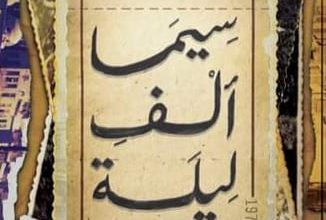 سِيمَا
ألْفِ
لِيلَة
197